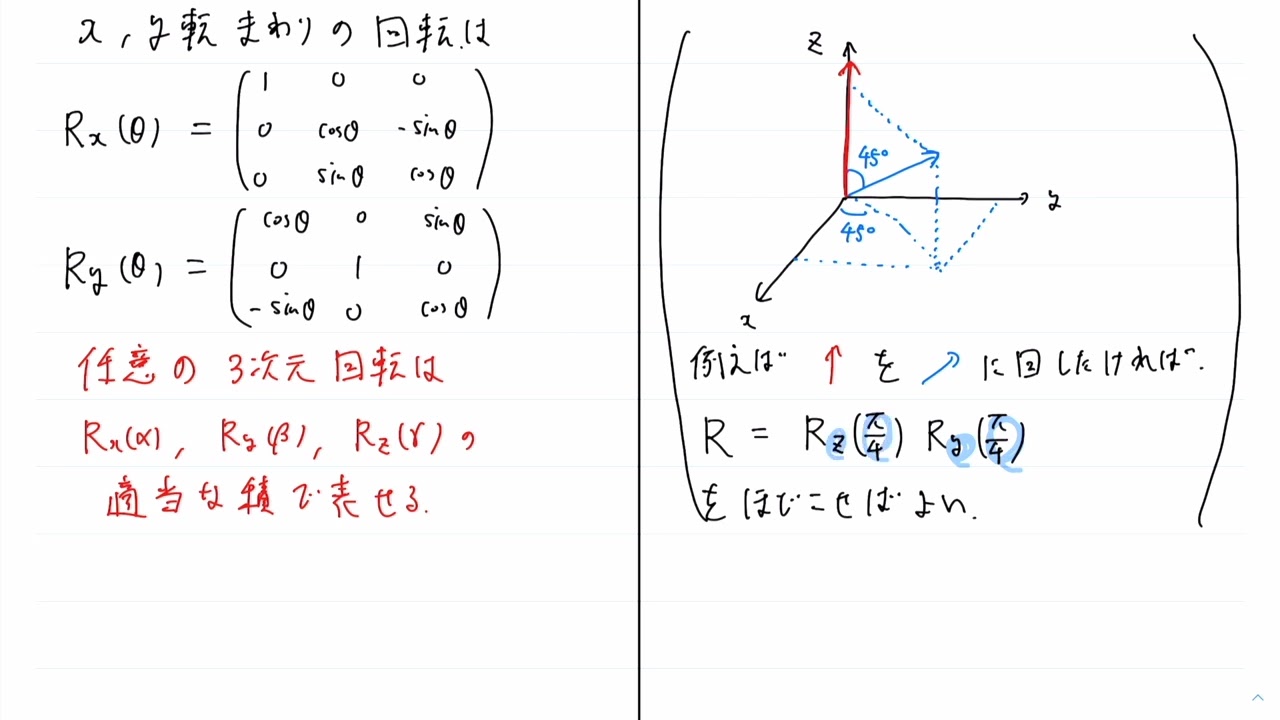 x, y転まわりの回転は
Rx(θ) = ( 1 0 0
0 cosθ -sinθ
0 sinθ cosθ )
Ry(θ) = ( cosθ 0 sinθ
0 1 0
-sinθ 0 cosθ )
任意の3次元回転は
Rx(α), Ry(β), Rz(γ)の
適当な積で表せる.
z
45°
y
45°
x
例えば ↑ を ↗ に回したければ.
R = Rz(π/4) Ry(π/4)
をほどこせばよい.